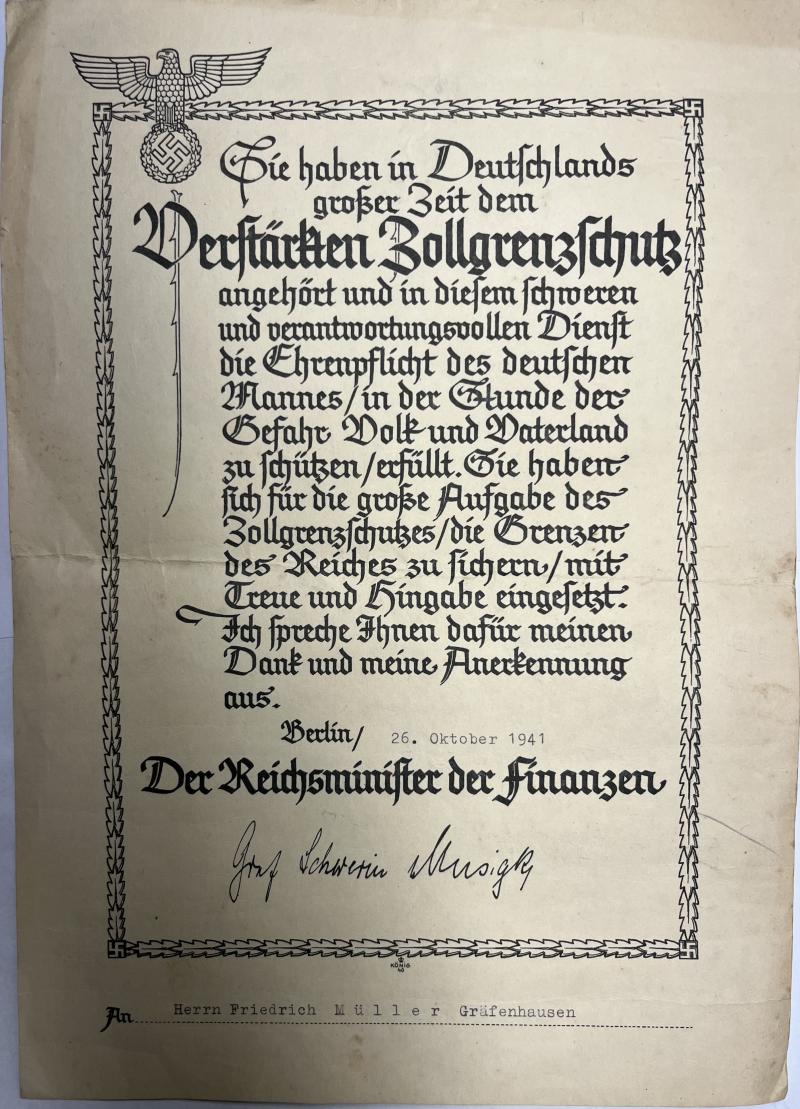 Sie haben in Deutschlands
großer Zeit dem
Verstärkten Zollgrenzschutz
angehört und in diesem schweren
und verantwortungsvollen Dienst
die Ehrenpflicht des deutschen
Mannes/in der Stunde der
Gefahr Volk und Vaterland
zu schützen/erfüllt. Sie haben
sich für die große Aufgabe des
Zollgrenzschutzes/die Grenzen
des Reiches zu sichern/mit
Treue und Hingabe eingesetzt.
Ich spreche Ihnen dafür meinen
Dank und meine Anerkennung
aus.
Berlin/ 26. Oktober 1941
Der Reichsminister der Finanzen
Graf Schwerin
KÖNIG
40
An Herrn Friedrich Müller Gräfenhausen